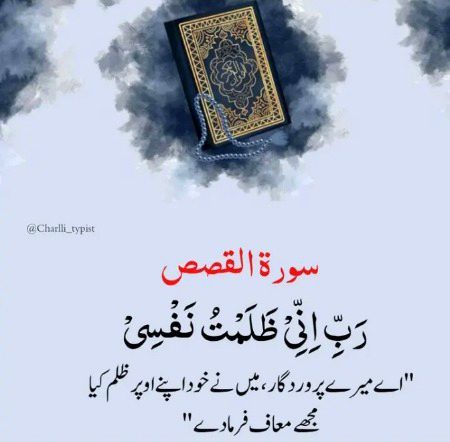 @Charlli_typist
سورة القصص
رَبِّ اِنِّیْ ظَلَمْتُ نَفْسِیْ
"اے میرے پروردگار، میں نے خود اپنے اوپر ظلم کیا
مجھے معاف فرما دے"